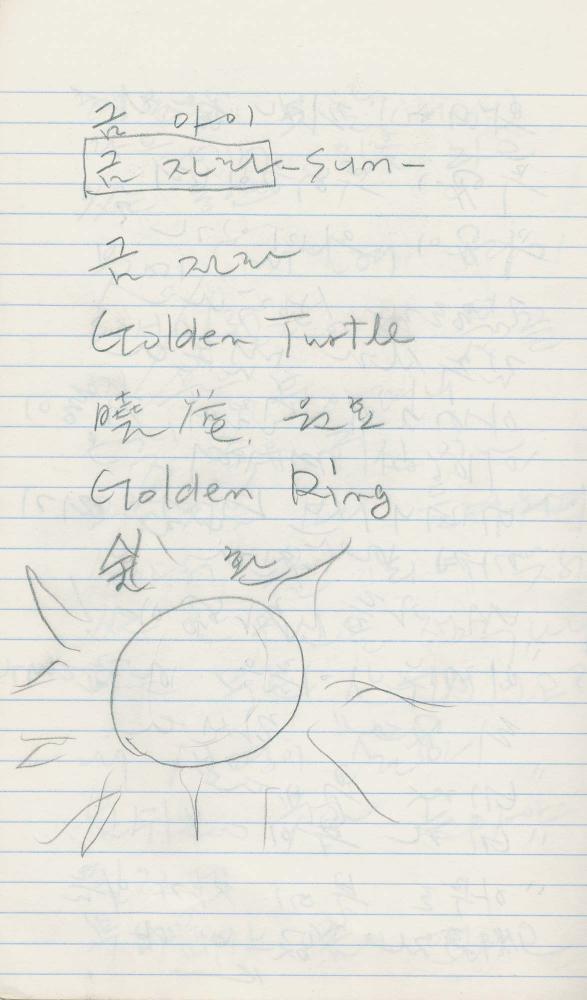 금 아이
금 자라 -Sun-
금 자라
Golden Turtle
曉雀, 원효
Golden Ring
金 환